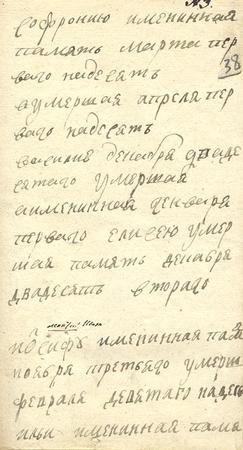 38
софронию именинная
память марта пер
ваго надесять
а умершая апреля пер
ваго надесять
василию декабря дваде
сятаго умершая
аименинная генваря
перваго елисею умер
шая память декабря
двадесять втораго
иѡсифу имянинная пам
ноября третьяго умерш
февраля девятаго надесь
ильи имѧнинная памя